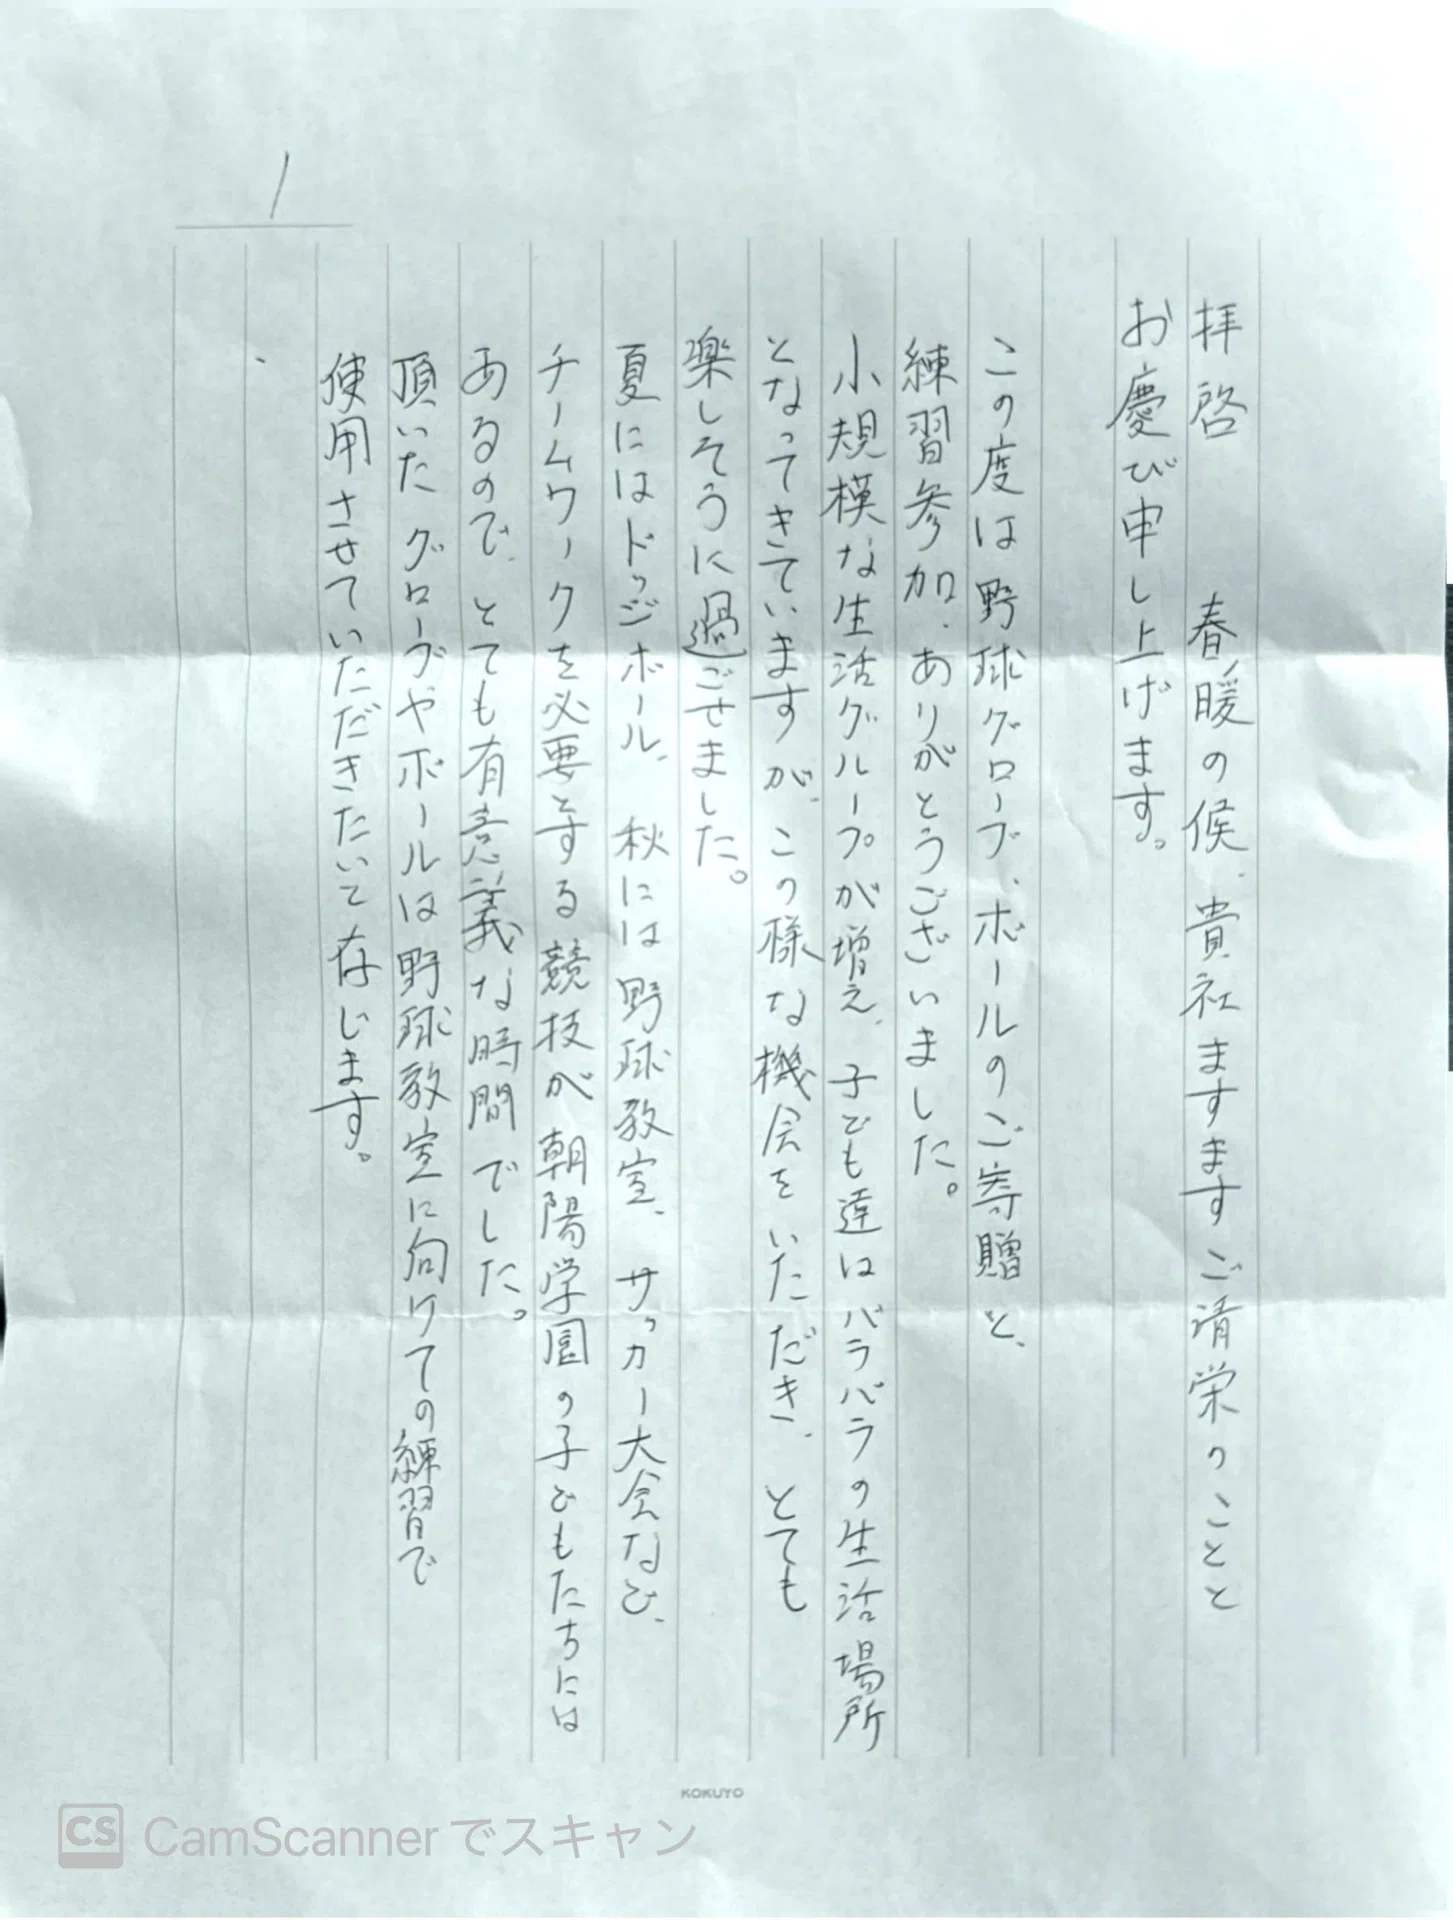 拝啓　春暖の候、貴社ますますご清栄のことと
お慶び申し上げます。
この度は野球グローブ、ボールのご寄贈と、
練習参加、ありがとうございました。
小規模な生活グループが増え、子ども達はバラバラの生活場所
となってきていますが、この様な機会をいただき、とても
楽しそうに過ごせました。
夏にはドッジボール、秋には野球教室、サッカー大会など、
チームワークを必要とする競技が朝陽学園の子どもたちには
あるので、とても有意義な時間でした。
頂いたグローブやボールは野球教室に向けての練習で
使用させていただきたいて存じます。
1
KOKUYO
CS CamScannerでスキャン